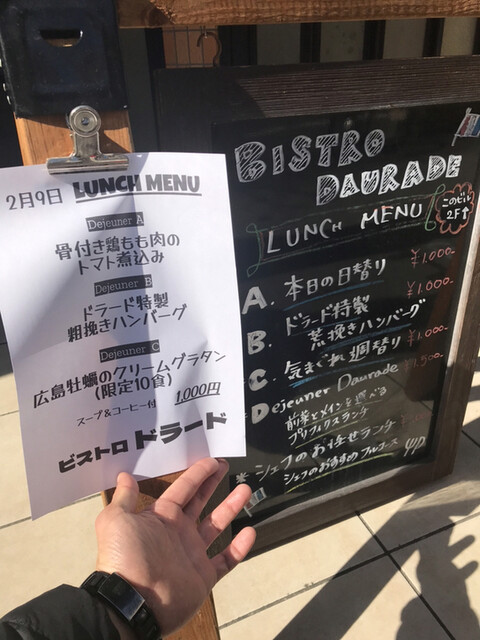 2月9日 LUNCH MENU
Dejeuner A
骨付き鶏もも肉の
トマト煮込み
Dejeuner B
ドラード特製
粗挽きハンバーグ
Dejeuner C
広島牡蠣のクリームグラタン
(限定10食)
スープ&コーヒー付 1,000円
ビストロ ドラード
BISTRO
DAURADE
このビル
2F↑
LUNCH MENU
A. 本日の日替り ¥1,000-
B. ドラード特製
荒挽きハンバーグ ¥1,000-
C. 気まぐれ週替り ¥1,000-
Dejeuner Daurade ¥1,500-
前菜とメインを選べる
プリフィクスランチ
※シェフのお任せランチ
シェフのおすすめフルコース